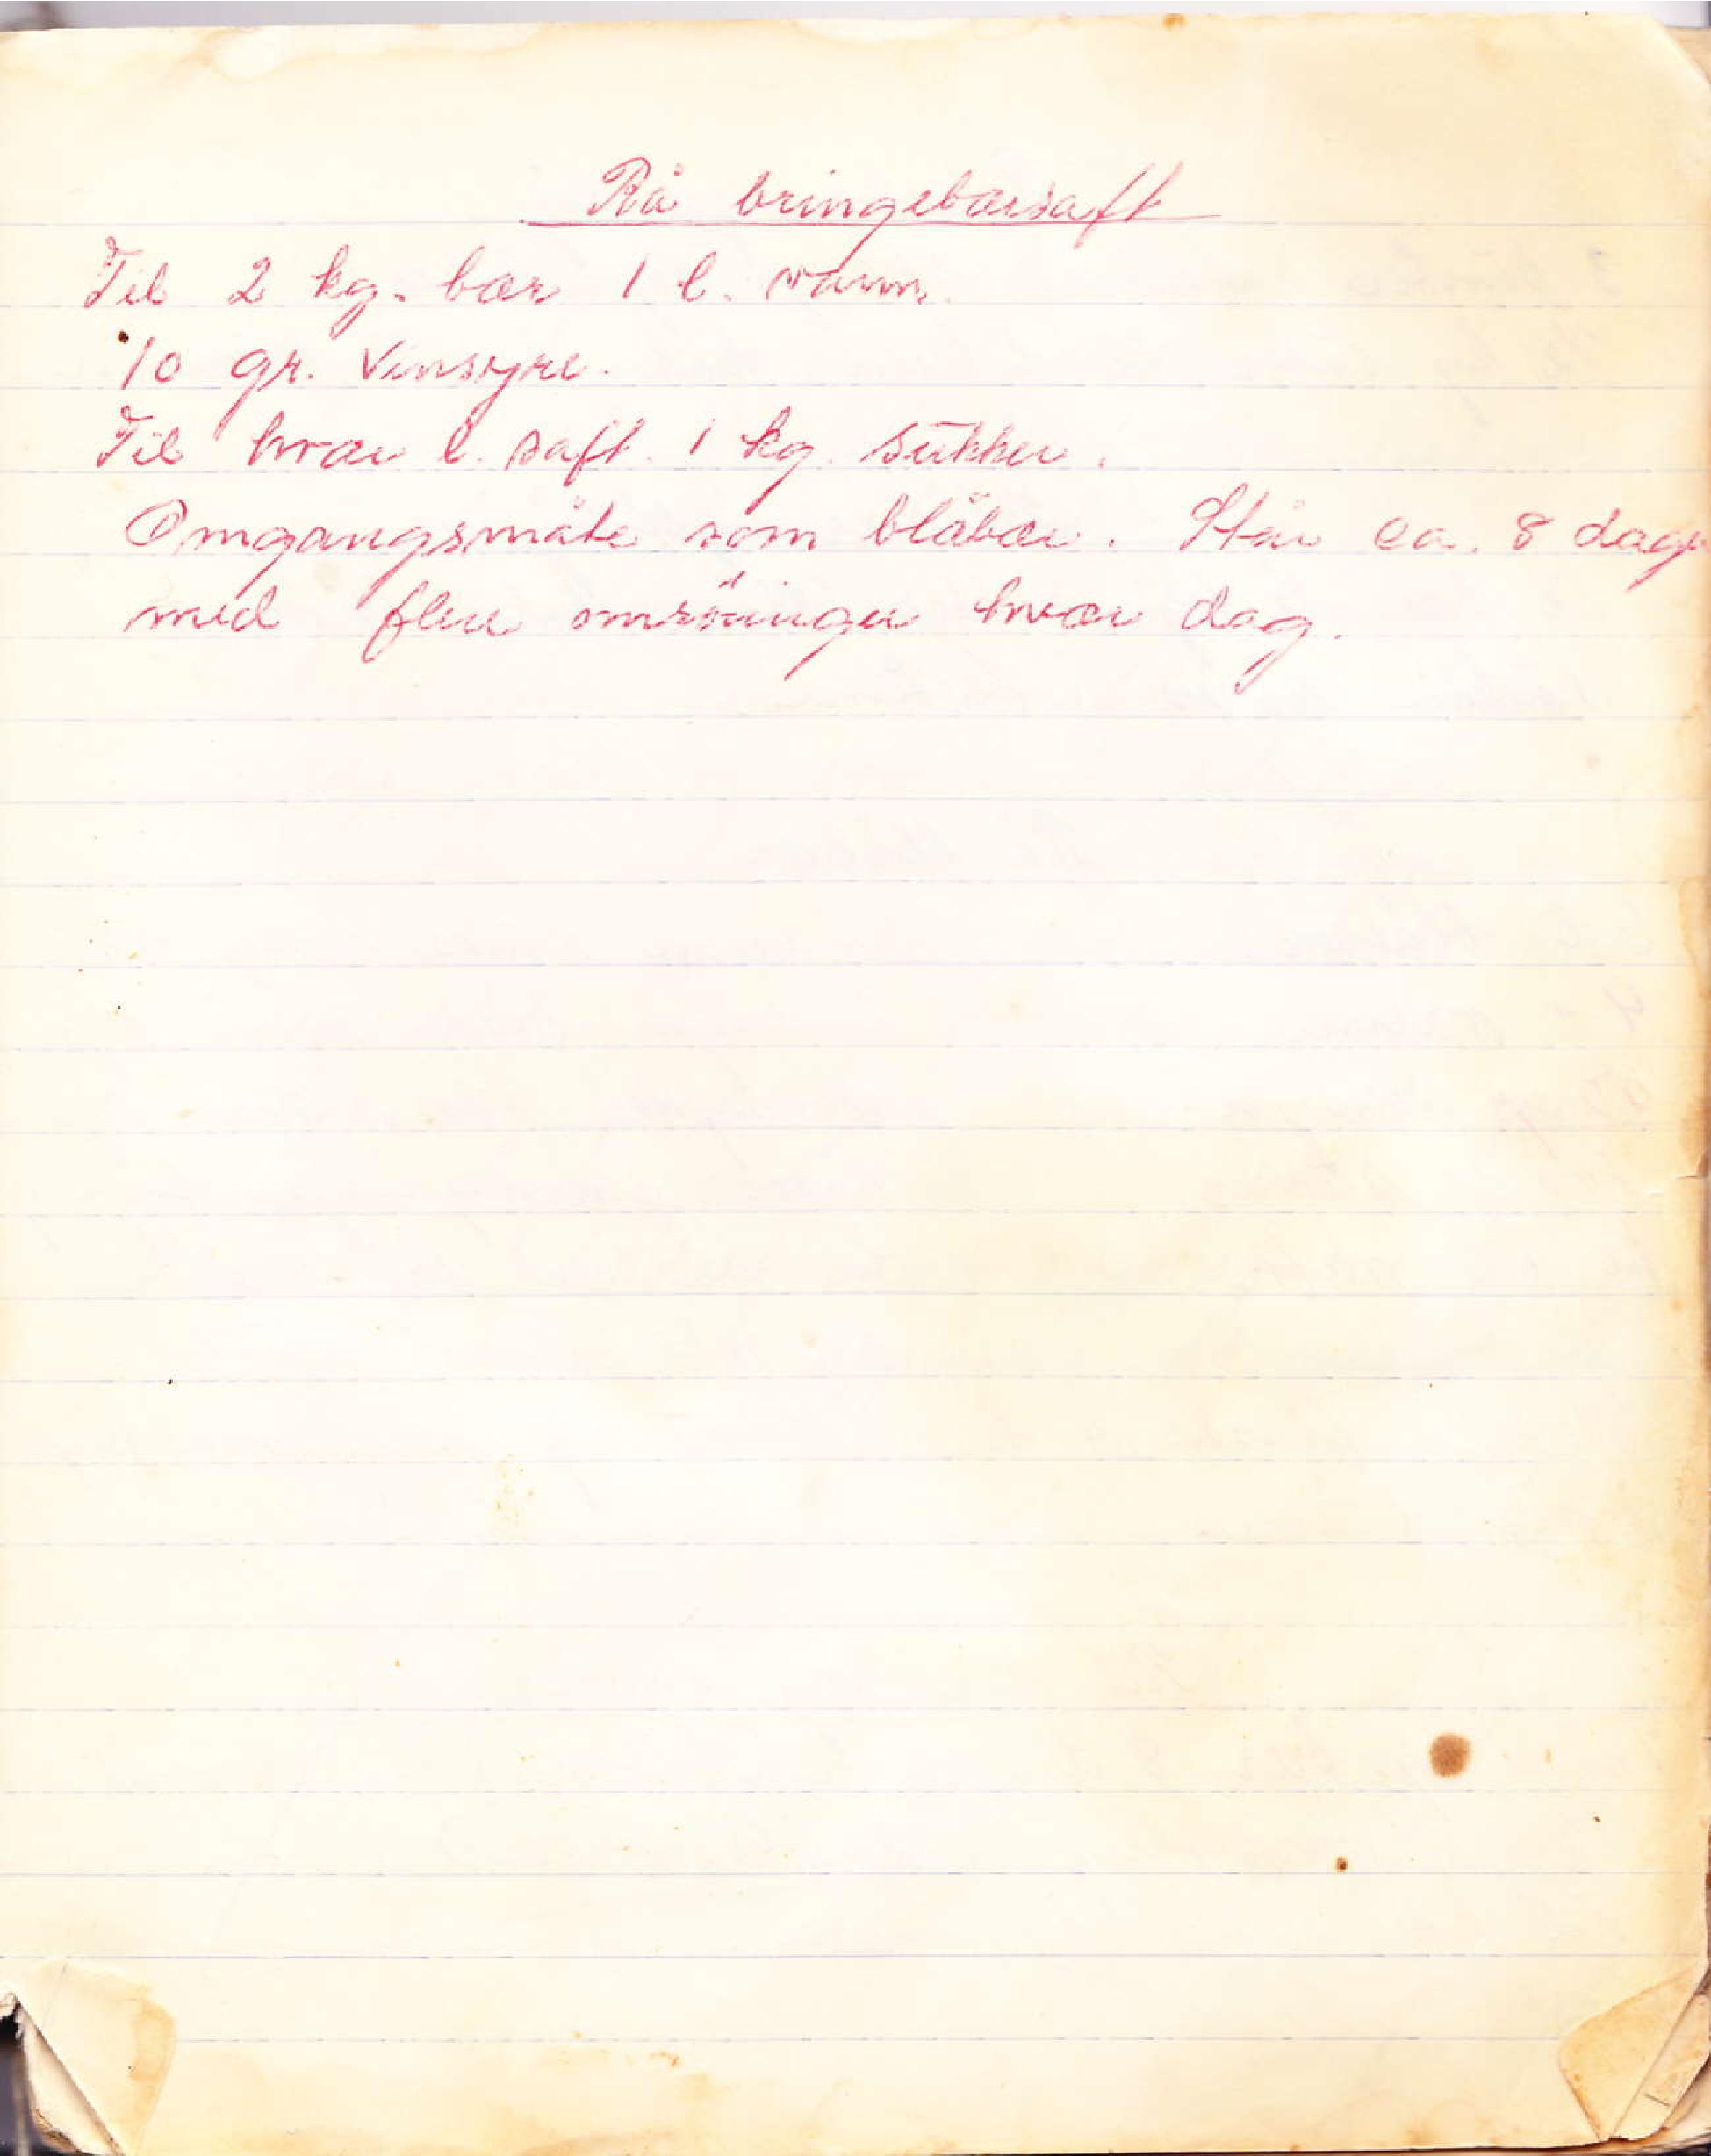 Rå bringebærsaft
Til 2 kg. bær 1 l. vann.
10 gr. Vinsyre.
Til hvær l. saft. 1 kg. sukker.
Omgangsmåte som blåbær. Står ca. 8 dager
med flere omröringer hvær dag.